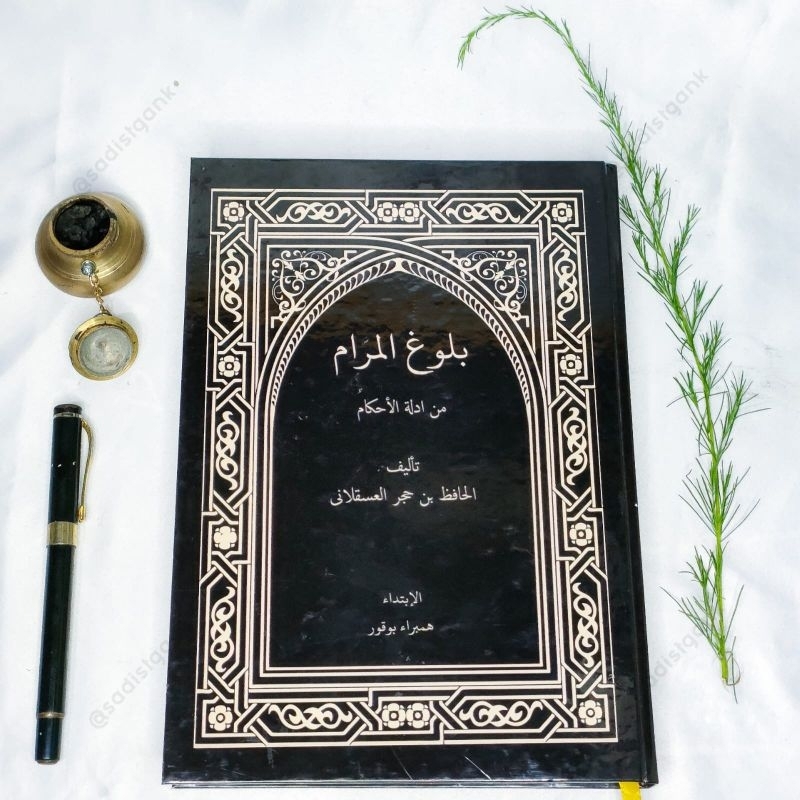 بلوغ المرام
من ادلة الأحكام
تأليف
الحافظ بن حجر العسقلانى
الإبتداء
همبراء بوقور
@sadistgank
@sadistgank
@sadistgank